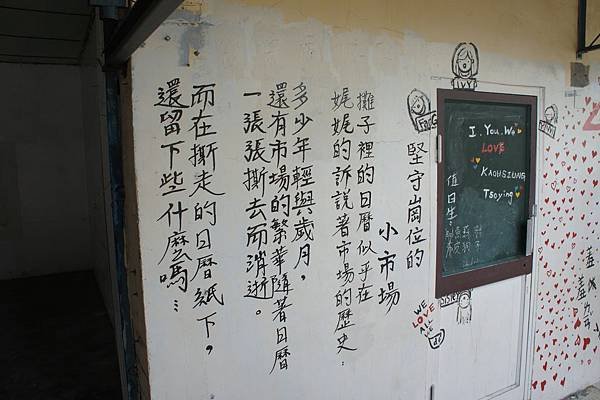 堅守崗位的
小市場
攤子裡的日曆似乎在
娓娓的訴說著市場的歷史:
多少年輕與歲月,
還有市場的繁華隨著日曆
一張張撕去而消逝。
而在撕走的日曆紙下,
還留下些什麼嗎…
IVY
I . You . We
LOVE
KAOHSIUNG
Tsoying
值日生
WE
LOVE
ALL
羞羞